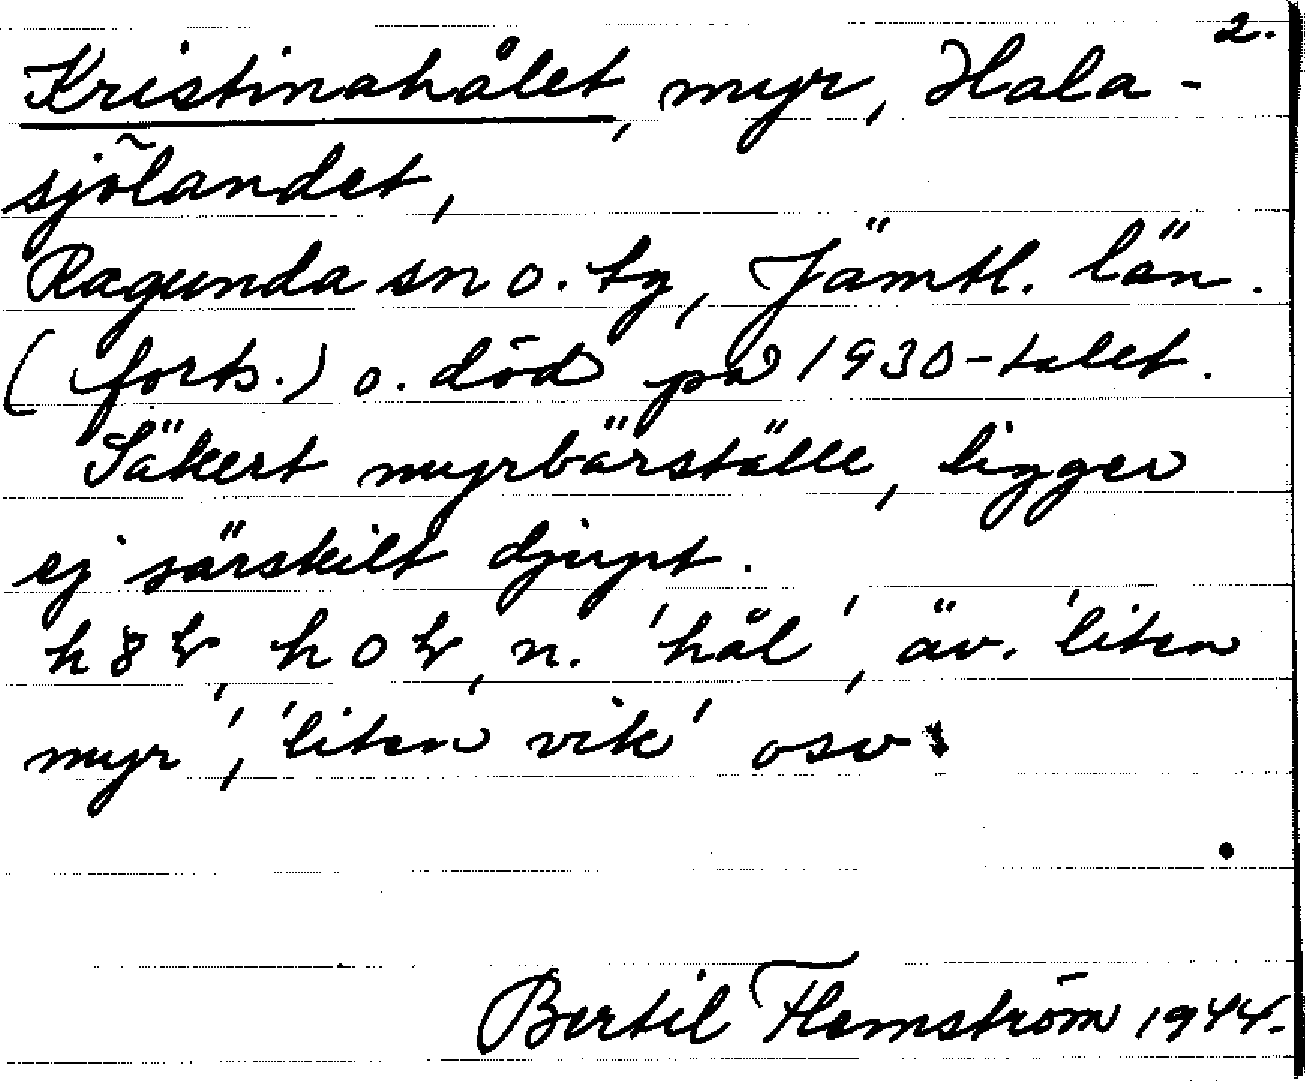 2.
Kristinahålet, myr, Hala-
sjölandet,
Ragunda sn o. tg, Jämtl. län.
(forts.) o. död på 1930-talet.
Säkert myrbärställe, ligger
ej särskilt djupt.
n. 'hål', äv. 'liten
myr', 'liten vik' osv.
Bertil Flemström 1944.